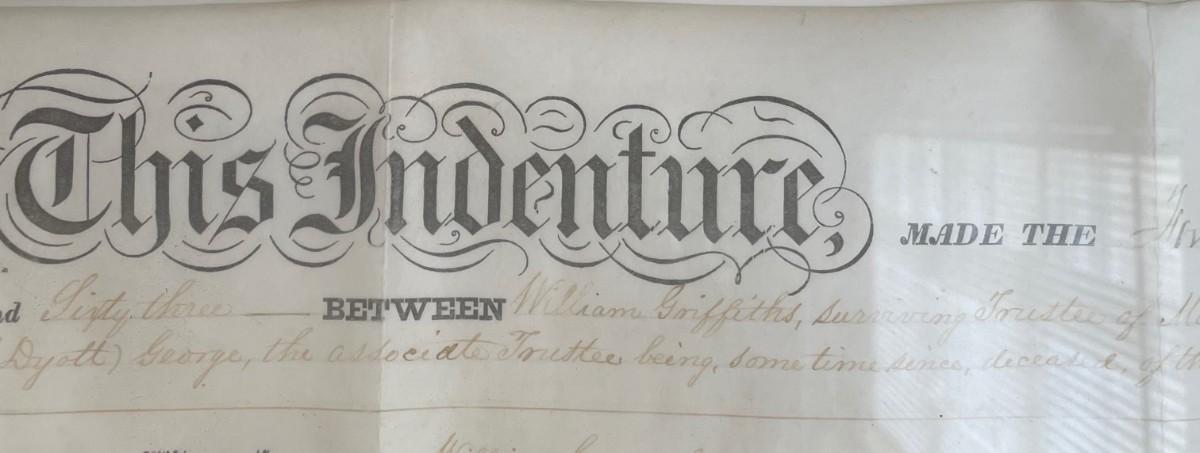 This Indenture, MADE THE
Sixty three BETWEEN William Griffiths, surviving Trustee of
Dyott) George, the associate Trustee being, some time since, deceased, of